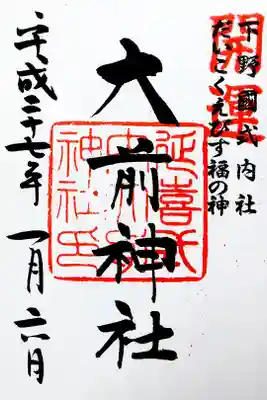 開運
下野國式内社
だいこくえびす福の神
大前神社
延喜式
神社
平成二十七年 一月六日